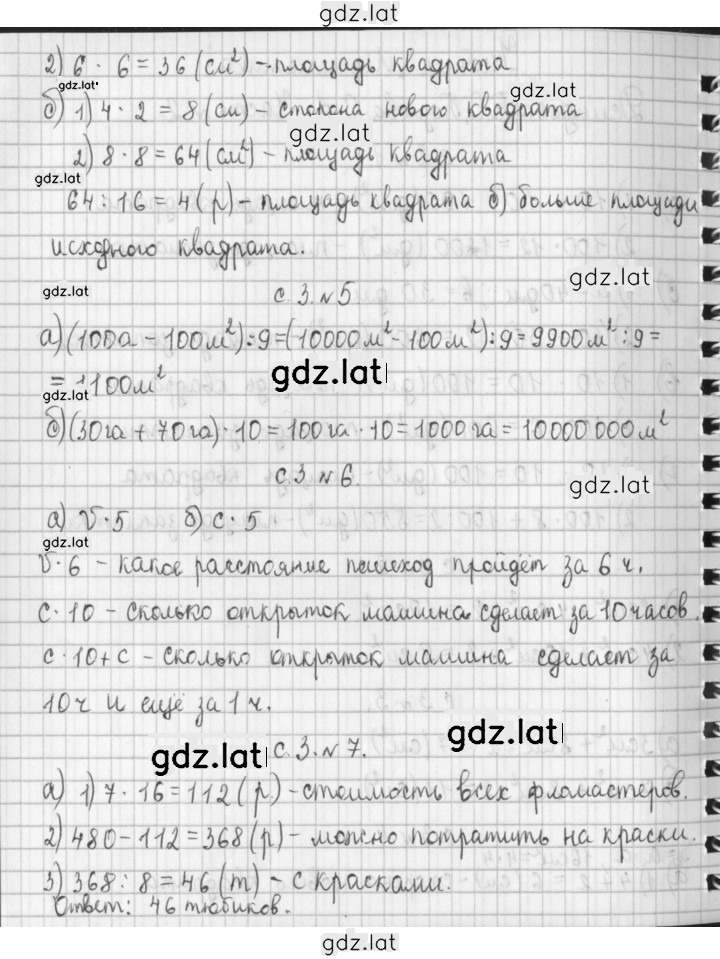 gdz.lat
2) 6 · 6 = 36 (см²) - площадь квадрата
gdz.lat
gdz.lat
б) 1) 4 · 2 = 8 (см) - сторона нового квадрата
gdz.lat
2) 8 · 8 = 64 (см²) - площадь квадрата
gdz.lat
64 : 16 = 4 (р) - площадь квадрата б) больше площади
исходного квадрата.
gdz.lat
с. 3. №5
gdz.lat
а) (100а - 100м²) : 9 = (10000м² - 100м²) : 9 = 9900м² : 9 =
= 1100м²
gdz.lat
б) (30га + 70га) · 10 = 100га · 10 = 1000га = 10000000м²
с. 3 №6.
gdz.lat
а) v · 5 б) с · 5
gdz.lat
v · 6 - какое расстояние пешеход пройдёт за 6 ч.
с · 10 - сколько открыток машина сделает за 10 часов.
с · 10 + с - сколько открыток машина сделает за
10ч и ещё за 1 ч.
gdz.lat
gdz.lat
с. 3. №7.
а) 1) 7 · 16 = 112 (р) - стоимость всех фломастеров.
2) 480 - 112 = 368 (р) - можно потратить на краски.
3) 368 : 8 = 46 (т) - с красками.
Ответ: 46 тюбиков.
gdz.lat